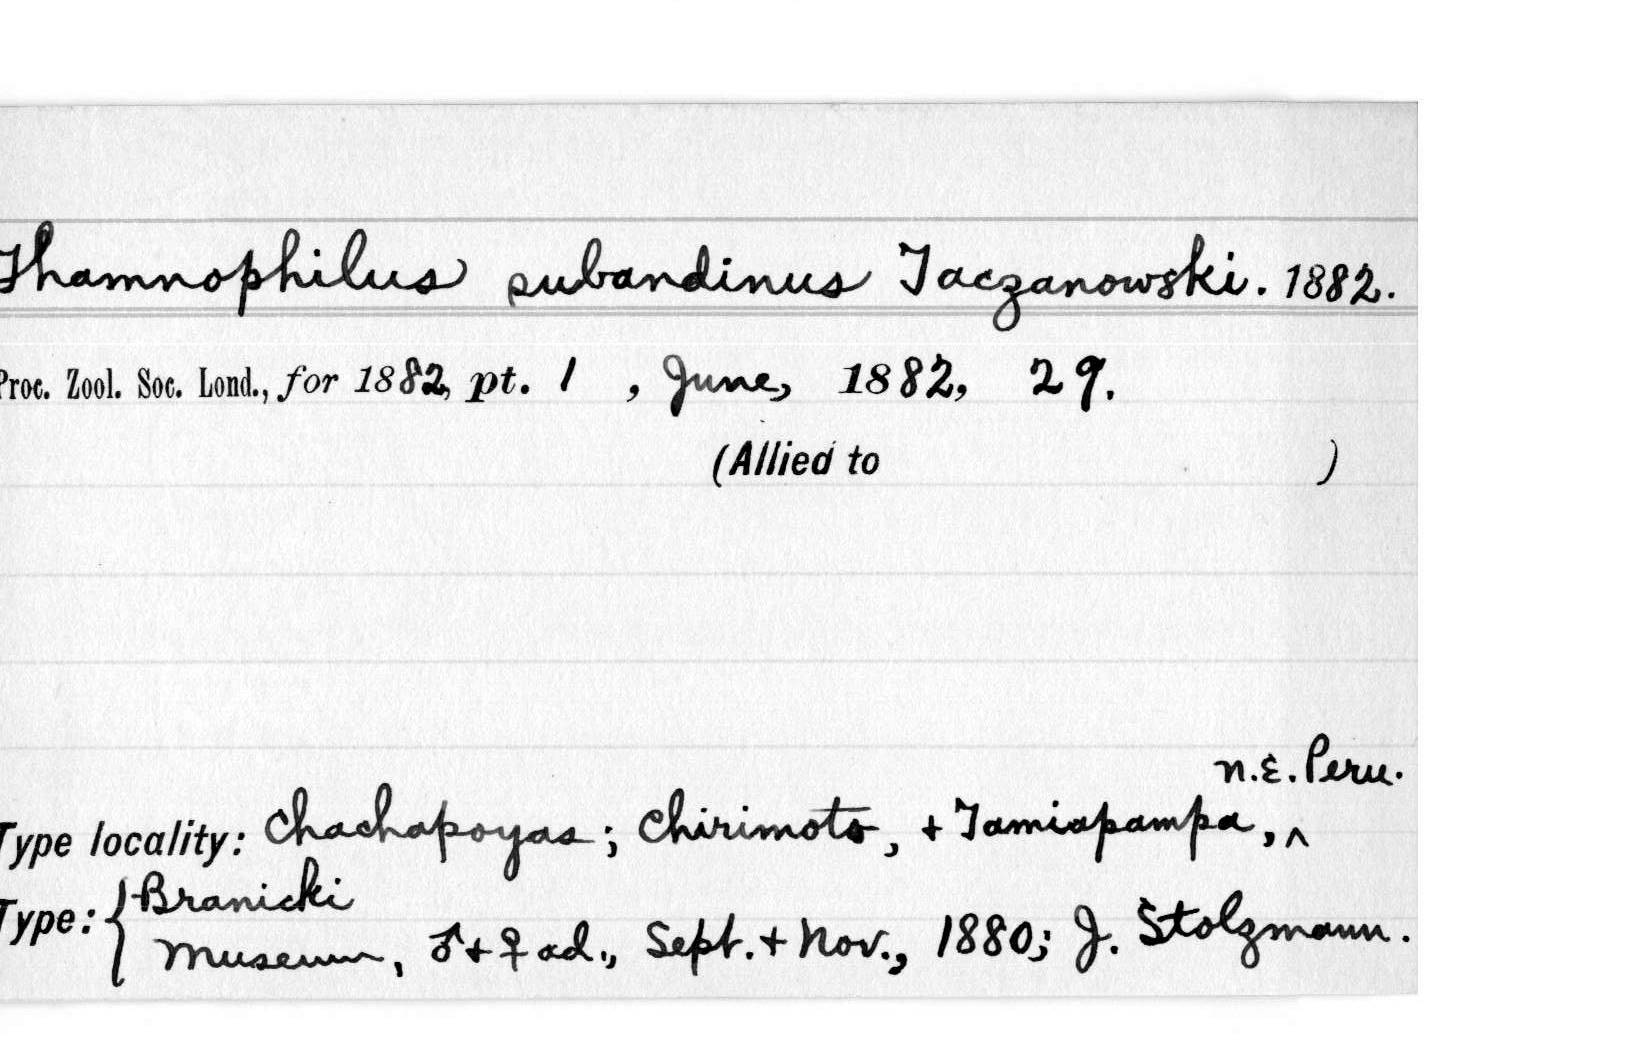 Thamnophilus subandinus Taczanowski. 1882.
Proc. Zool. Soc. Lond., for 1882, pt. 1 , June, 1882, 29.
(Allied to )
n.E. Peru.
Type locality: Chachapoyas; Chirimoto, + Tamiapampa, ^
Type: { Branicki
Museum, ♂ + ♀ ad., Sept. + Nov., 1880; J. Stolzmann.